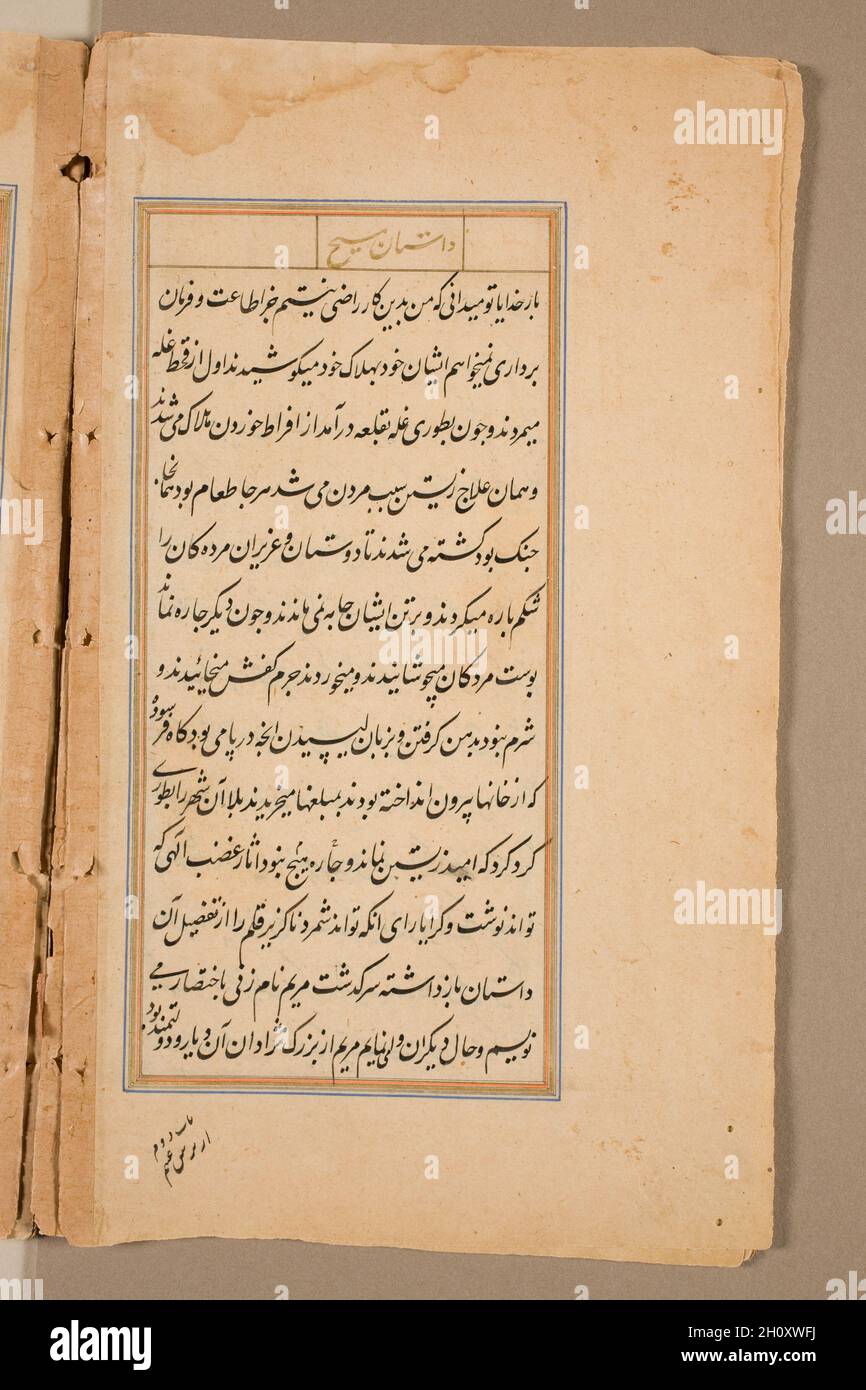 داستان مسیح
بار خدایا تو میدانی که من بدین کار راضی نیستم جز اطاعت و فرمان
برداری نمیخواهم ایشان خود بهلاک خود میکوشیدند اول از قحط غله
میمردند و چون بطوری غله بقلعه درآمد از افراط خوردن هلاک می شدند
و همان علاج زیستن سبب مردن می شد هر جا طعام بود همانجا
جنک بود کشته می شدند تا دوستان و عزیزان مرده کان را
شکم پاره میکردند و بر تن ایشان جامه نمی ماندند و چون دیکر چاره نماند
پوست مردکان میجوشانیدند و میخوردند چرم کفش میخائیدند و
شرم نبود بدهن کرفتن و بزبان لیسیدن انچه در پا می بود کاه فرسوده
که از خانها بیرون انداخته بودند بمبلغها میخریدند بلا آن شهر را بطوری
کرد کرد که امید زیستن نماند و چاره هیچ نبود آثار غضب الهی که
تواند نوشت و کرا یارای انکه تواند شمرد ناکزیر قلم را از تفصیل آن
داستان باز داشته سرکذشت مریم نام زنی باختصار می
نویسم و حال دیکران وا می نمایم مریم از بزرک نژادان آن دیار و دولتمند بود
باب دوم
a alamy
alamy
Image ID: 2H0XWFJ
www.alamy.com